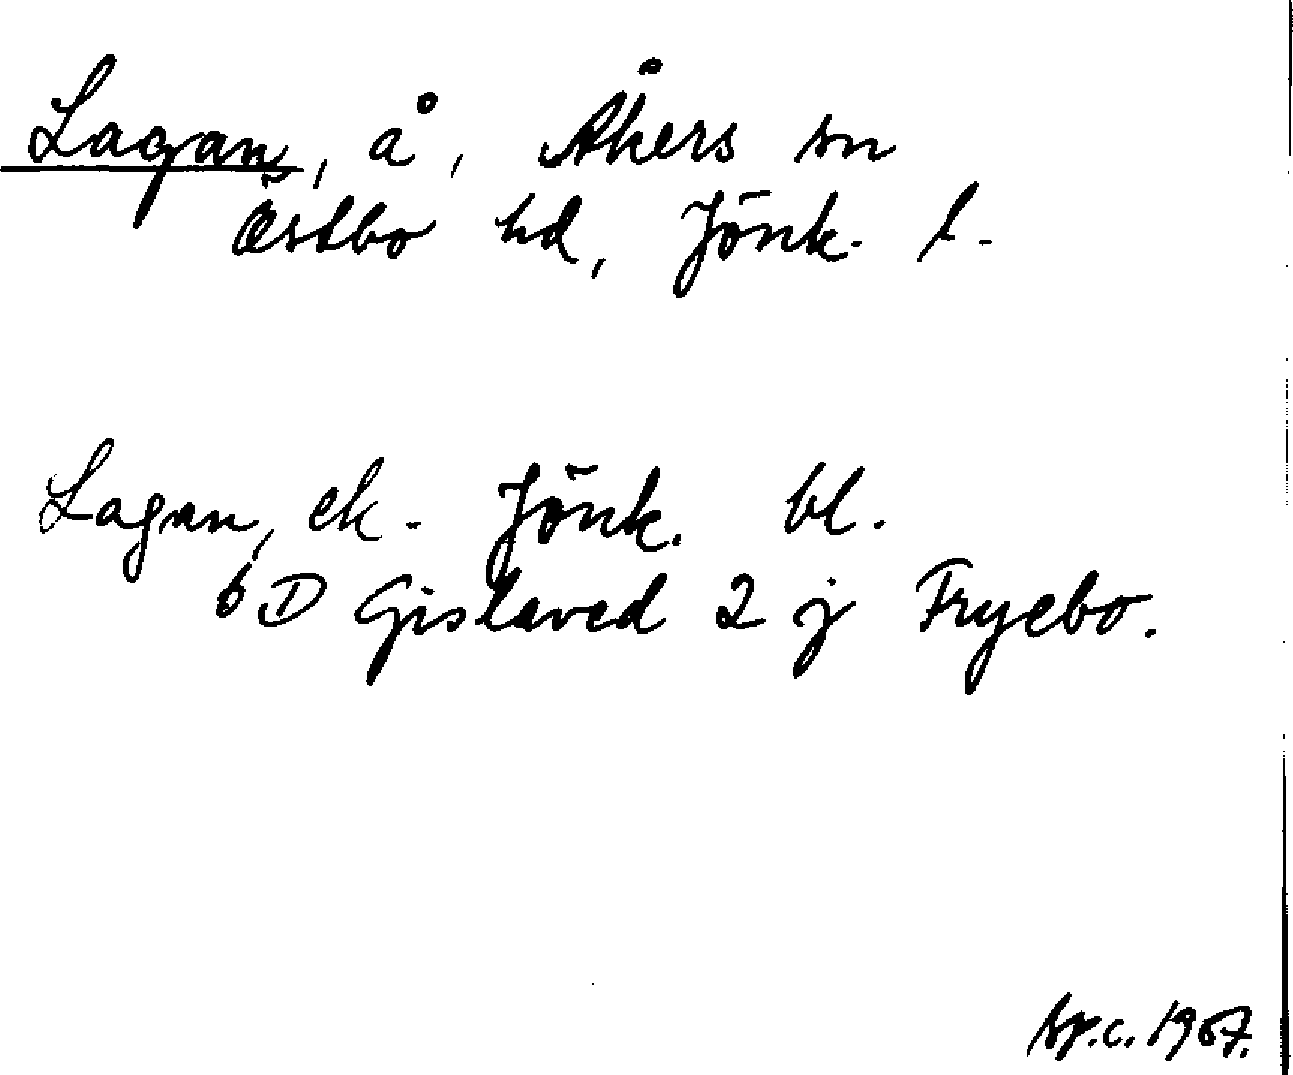 Lagan, å, Åkers sn
Östbo hd, Jönk. l.
Lagan, ek. Jönk. bl.
6D Gislaved 2 j Fryebo.
1967.